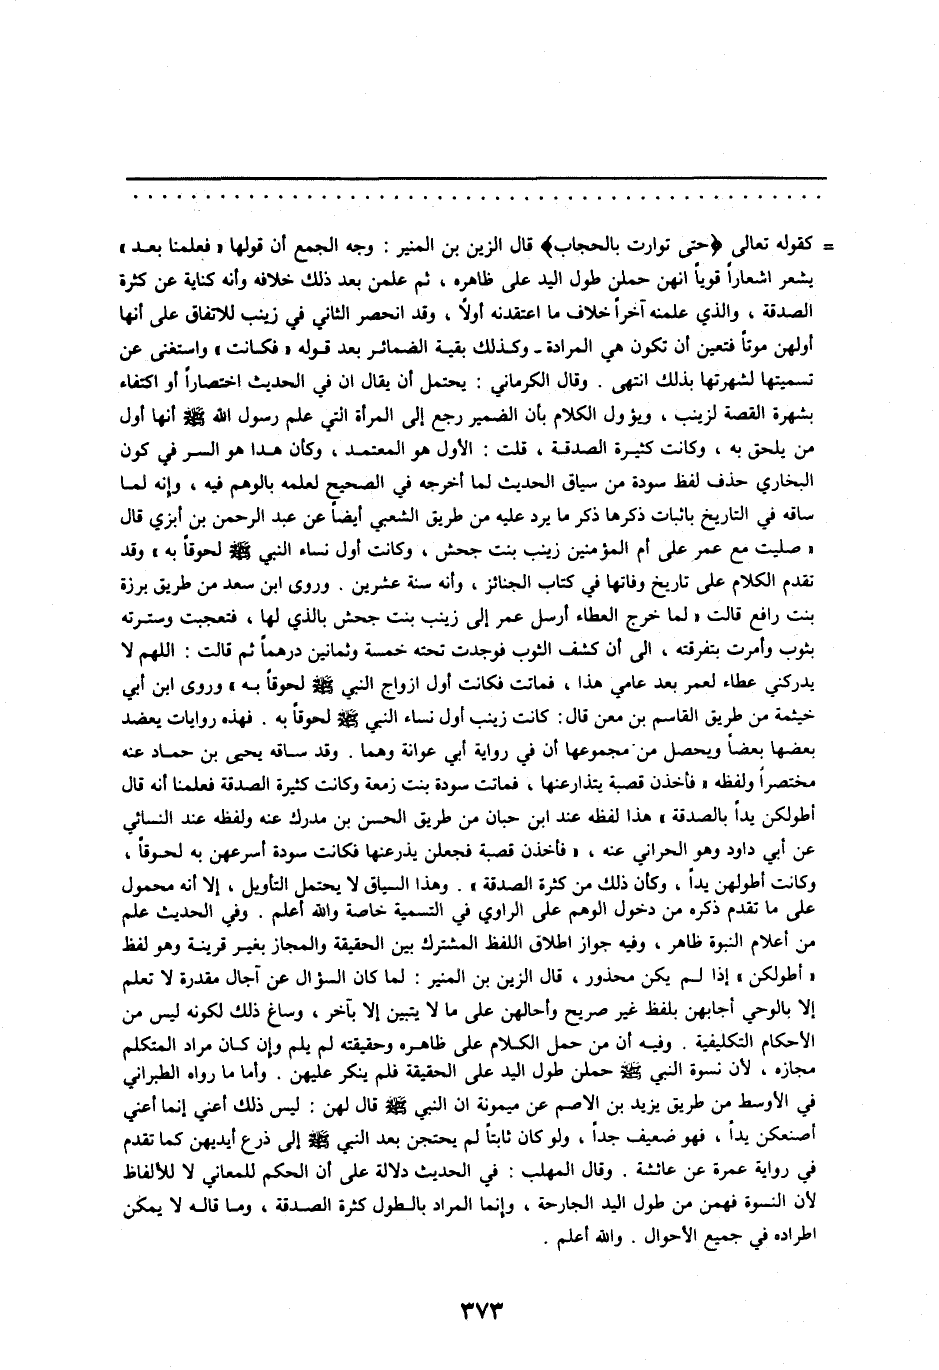 = كقوله تعالى ﴿حتى توارت بالحجاب﴾ قال الزين بن المنير : وجه الجمع أن قولها « فعلمنا بعد »
يشعر اشعاراً قوياً انهن حملن طول اليد على ظاهره ، ثم علمن بعد ذلك خلافه وأنه كناية عن كثرة
الصدقة ، والذي علمنه آخراً خلاف ما اعتقدنه أولاً ، وقد انحصر الثاني في زينب للاتفاق على أنها
أولهن موتاً فتعين أن تكون هي المرادة ـ وكذلك بقية الضمائر بعد قوله « فكانت » واستغنى عن
تسميتها لشهرتها بذلك انتهى . وقال الكرماني : يحتمل أن يقال ان في الحديث اختصاراً أو اكتفاء
بشهرة القصة لزينب ، ويؤول الكلام بأن الضمير رجع إلى المرأة التي علم رسول الله ﷺ أنها أول
من يلحق به ، وكانت كثيرة الصدقة ، قلت : الأول هو المعتمد ، وكأن هذا هو السر في كون
البخاري حذف لفظ سودة من سياق الحديث لما أخرجه في الصحيح لعلمه بالوهم فيه ، وإنه لما
ساقه في التاريخ باثبات ذكرها ذكر ما يرد عليه من طريق الشعبي أيضاً عن عبد الرحمن بن أبزي قال
« صليت مع عمر على أم المؤمنين زينب بنت جحش ، وكانت أول نساء النبي ﷺ لحوقاً به » وقد
تقدم الكلام على تاريخ وفاتها في كتاب الجنائز ، وأنه سنة عشرين . وروى ابن سعد من طريق برزة
بنت رافع قالت « لما خرج العطاء أرسل عمر إلى زينب بنت جحش بالذي لها ، فتعجبت وسترته
بثوب وأمرت بتفرقته ، الى أن كشف الثوب فوجدت تحته خمسة وثمانين درهماً ثم قالت : اللهم لا
يدركني عطاء لعمر بعد عامي هذا ، فماتت فكانت أول ازواج النبي ﷺ لحوقاً به » وروى ابن أبي
خيثمة من طريق القاسم بن معن قال: كانت زينب أول نساء النبي ﷺ لحوقاً به . فهذه روايات يعضد
بعضها بعضاً ويحصل من مجموعها أن في رواية أبي عوانة وهما . وقد ساقه يحيى بن حماد عنه
مختصراً ولفظه « فأخذن قصبة يتذارعنها ، فماتت سودة بنت زمعة وكانت كثيرة الصدقة فعلمنا أنه قال
أطولكن يداً بالصدقة » هذا لفظه عند ابن حبان من طريق الحسن بن مدرك عنه ولفظه عند النسائي
عن أبي داود وهو الحراني عنه ، « فأخذن قصبة فجعلن يذرعنها فكانت سودة أسرعهن به لحوقاً ،
وكانت أطولهن يداً ، وكأن ذلك من كثرة الصدقة » . وهذا السياق لا يحتمل التأويل ، إلا أنه محمول
على ما تقدم ذكره من دخول الوهم على الراوي في التسمية خاصة والله أعلم . وفي الحديث علم
من أعلام النبوة ظاهر ، وفيه جواز اطلاق اللفظ المشترك بين الحقيقة والمجاز بغير قرينة وهو لفظ
« أطولكن » إذا لم يكن محذور ، قال الزين بن المنير : لما كان السؤال عن آجال مقدرة لا تعلم
إلا بالوحي أجابهن بلفظ غير صريح وأحالهن على ما لا يتبين إلا بآخر ، وساغ ذلك لكونه ليس من
الأحكام التكليفية . وفيه أن من حمل الكلام على ظاهره وحقيقته لم يلم وإن كان مراد المتكلم
مجازه ، لأن نسوة النبي ﷺ حملن طول اليد على الحقيقة فلم ينكر عليهن . وأما ما رواه الطبراني
في الأوسط من طريق يزيد بن الاصم عن ميمونة ان النبي ﷺ قال لهن : ليس ذلك أعني إنما أعني
أصنعكن يداً ، فهو ضعيف جداً ، ولو كان ثابتاً لم يحتجن بعد النبي ﷺ إلى ذرع أيديهن كما تقدم
في رواية عمرة عن عائشة . وقال المهلب : في الحديث دلالة على أن الحكم للمعاني لا للألفاظ
لأن النسوة فهمن من طول اليد الجارحة ، وإنما المراد بالطول كثرة الصدقة ، وما قاله لا يمكن
اطراده في جميع الأحوال . والله أعلم .
٣٧٣